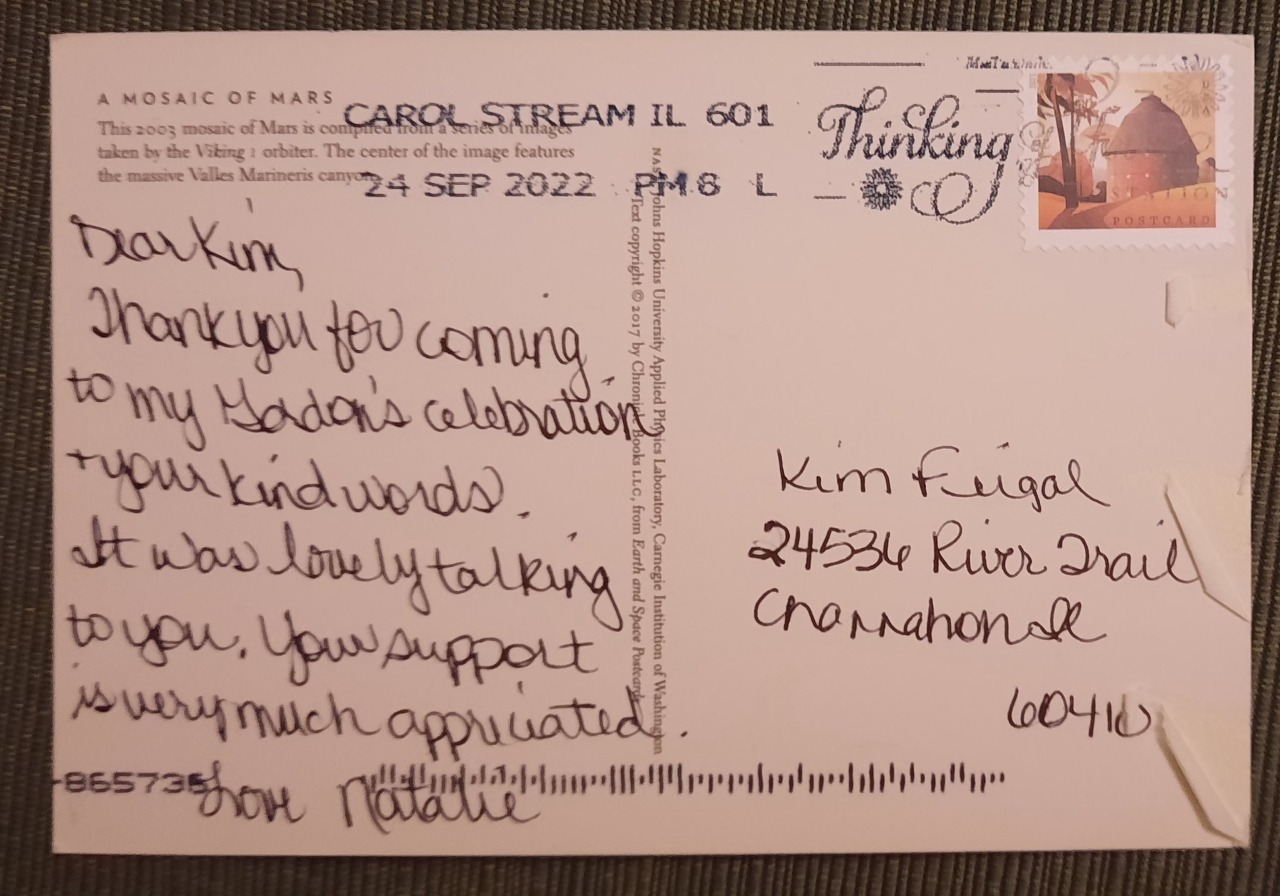 A MOSAIC OF MARS
This 2003 mosaic of Mars is compiled from a series of images
taken by the Viking 1 orbiter. The center of the image features
the massive Valles Marineris canyon.
CAROL STREAM IL 601
24 SEP 2022 PM 8 L
Thinking
POSTCARD
Dear Kim,
Thank you for coming
to my Gordon's celebration
+ your kind words.
It was lovely talking
to you. Your support
is very much appriciated.
Love Natalie
Johns Hopkins University Applied Physics Laboratory, Carnegie Institution of Washington
Text copyright © 2017 by Chronicle Books LLC, from Earth and Space Postcards
Kim Feigal
24536 River Trail
Channahon Il
60410
865735